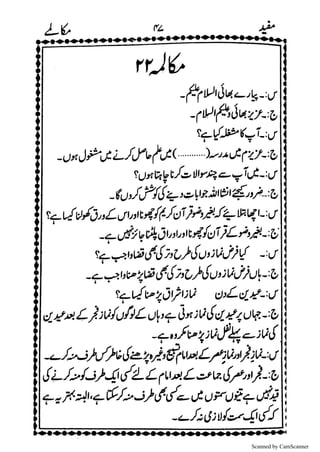 مفید ۴۷ مکالمے
مکالمہ ۲۲
س:۔ پیارے بھائی السلام علیکم۔
ج:۔ عزیز بھائی وعلیکم السلام۔
س:۔ آپ کا مشغلہ کیا ہے؟
ج:۔ عزیزم میں مدرسہ (............) میں علم حاصل کرنے میں مشغول ہوں۔
س:۔ میں آپ سے چند سوالات کرنا چاہتا ہوں؟
ج:۔ ضرور کیجئے انشاءاللہ جوابات دینے کی کوشش کروں گا۔
س:۔ اچھا بتلائیے کہ بغیر وضو قرآن کریم کو چھونا اور اس کے ورق کھولنا کیسا ہے؟
ج:۔ بغیر وضو کے قرآن کو چھونا اور اوراق پلٹنا جائز نہیں ہے۔
س:۔ کیا فرض نمازوں کی طرح وتر کی بھی قضا واجب ہے؟
ج:۔ ہاں فرض نمازوں کی طرح وتر کی بھی قضا پڑھنا واجب ہے۔
س:۔ عیدین کے دن نماز اشراق پڑھنا کیسا ہے؟
ج:۔ جہاں پر عیدین کی نماز ہوتی ہے وہاں کے لوگوں کو نماز فجر کے بعد عیدین
کی نماز سے پہلے نفل نماز پڑھنا مکروہ ہے۔
س:۔ نماز فجر اور نماز عصر کے بعد امام تسبیح وغیرہ پڑھنے کی خاطر کس طرف منہ کرے۔
ج:۔ فجر اور عصر کی جماعت کے بعد امام کے لئے کسی ایک طرف کو منہ کرنے کی
قید نہیں ہے تینوں سمتوں میں سے کسی بھی طرف منہ کر سکتا ہے، البتہ بہتر یہ ہے
کہ کسی ایک سمت کو لازمی نہ کرے۔
Scanned by CamScanner